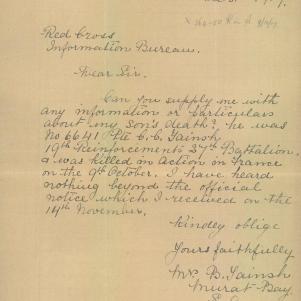 Red Cross
Information Bureau.
Dear Sir.
Can you supply me with
any information or particulars
about my Son's death? he was
No 6641 Pte C. C. Tainsh
19th Reinforcements 27th Battalion.
& was killed in Action in France
on the 9th October. I have heard
nothing beyond the official
notice which I received on the
14th November.
Kindey oblige
Yours faithfully
Mrs B. Tainsh
Murat-Bay
S.A.